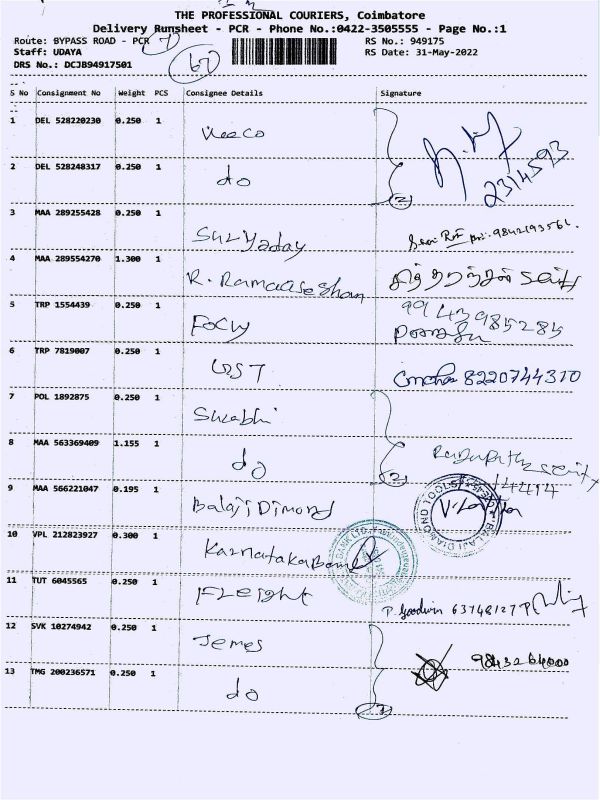 THE PROFESSIONAL COURIERS, Coimbatore
Delivery Runsheet - PCR - Phone No.:0422-3505555 - Page No.:1
Route: BYPASS ROAD - PCR 7 RS No.: 949175
Staff: UDAYA RS Date: 31-May-2022
DRS No.: DCJB94917501 67
S No Consignment No Weight PCS Consignee Details Signature
1 DEL 528220230 0.250 1 Veeco
2 DEL 528248317 0.250 1 do 2 2314593
3 MAA 289255428 0.250 1 Suryaday
4 MAA 289554270 1.300 1 R. Ramaseshan
5 TRP 1554439 0.250 1 Focus 9943985285
6 TRP 7819007 0.250 1 GST 8220744310
7 POL 1892875 0.250 1 Surabhi
8 MAA 563369409 1.155 1 do 2
9 MAA 566221047 0.195 1 Balaji Dimond BALAJI DIAMOND TOOLS
10 VPL 212823927 0.300 1 Karnataka Bank
11 TUT 6045565 0.250 1 Fleight P. Goodwin
12 SVK 10274942 0.250 1 Jemes
13 TMG 200236571 0.250 1 do